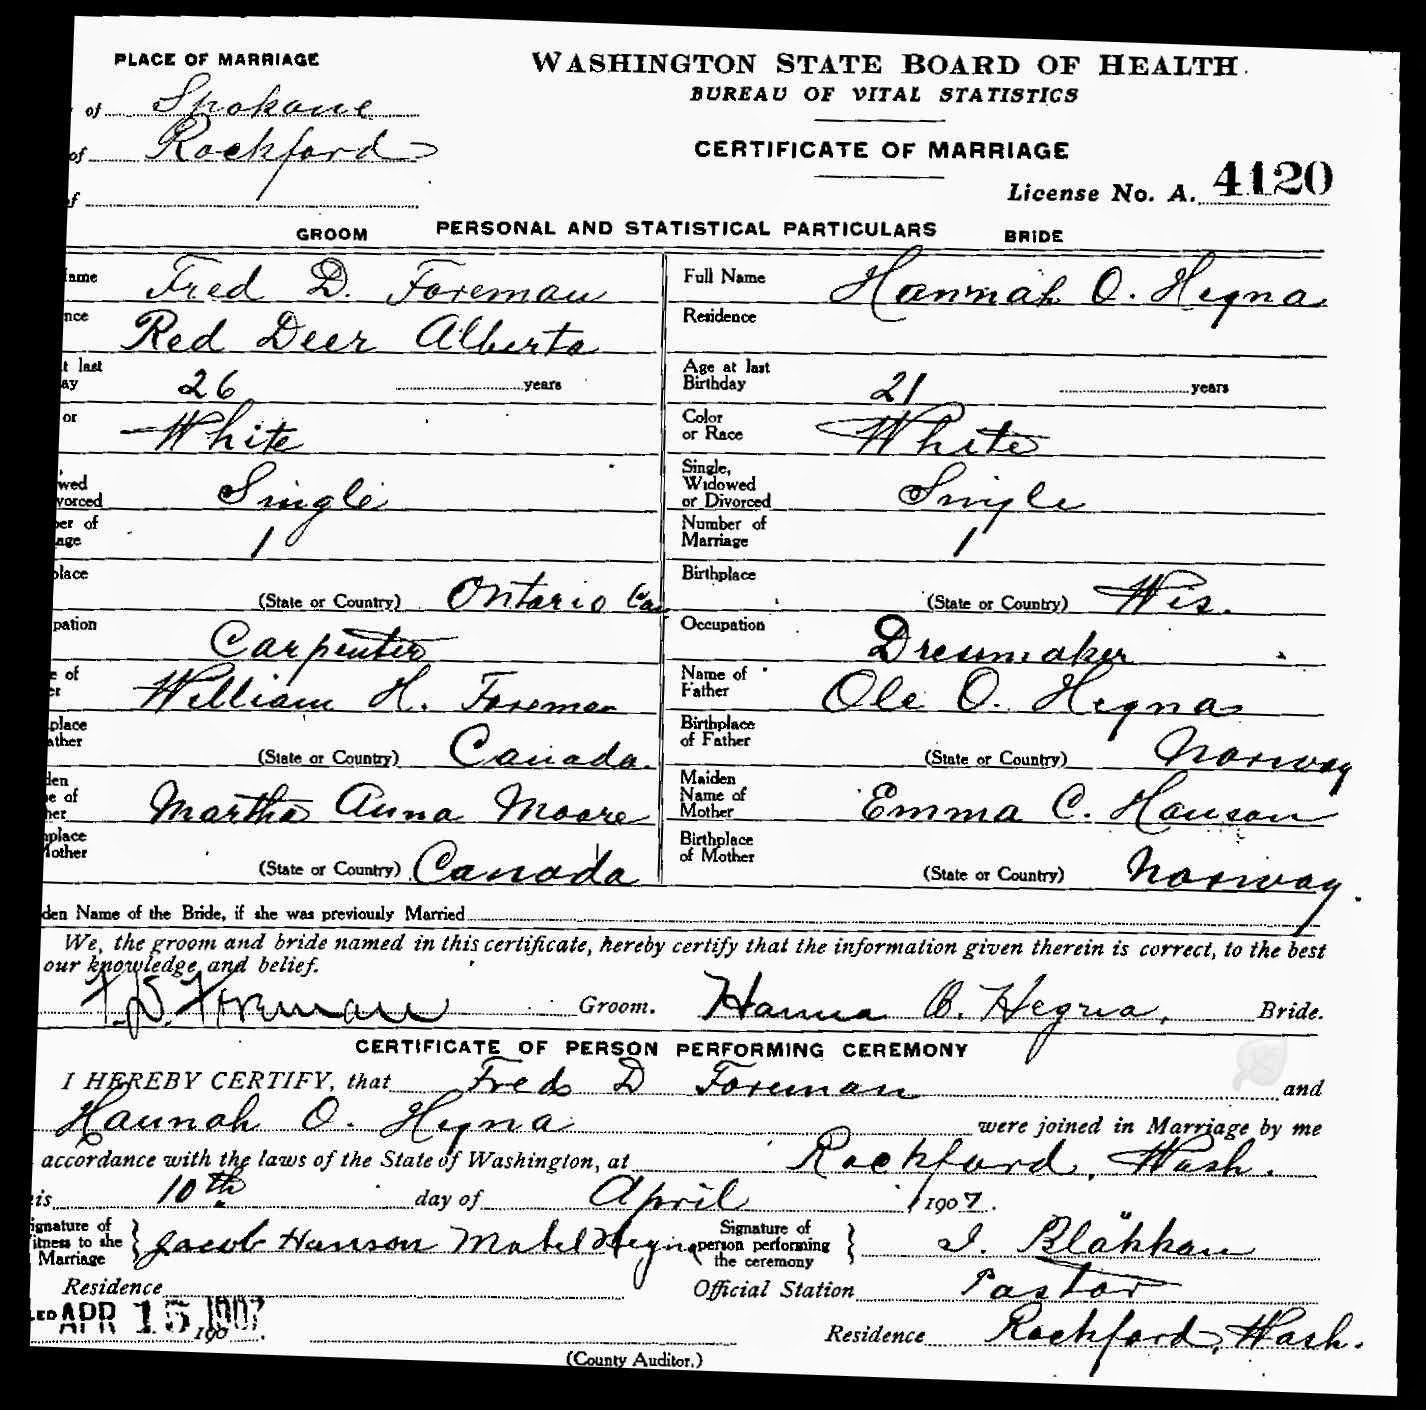 PLACE OF MARRIAGE
WASHINGTON STATE BOARD OF HEALTH
of Spokane
BUREAU OF VITAL STATISTICS
of Rockford
CERTIFICATE OF MARRIAGE
of
License No. A. 4120
PERSONAL AND STATISTICAL PARTICULARS
GROOM
BRIDE
ame Fred D. Foreman Full Name Hannah O. Hegna
nce Red Deer Alberta Residence
t last ay 26 years Age at last Birthday 21 years
or White Color or Race White
wed vorced Single Single, Widowed or Divorced Single
er of age 1 Number of Marriage 1
place (State or Country) Ontario Can Birthplace (State or Country) Wis.
pation Carpenter Occupation Dressmaker
e of er William H. Foreman Name of Father Ole O. Hegna
place ather (State or Country) Canada. Birthplace of Father (State or Country) Norway
den e of her Martha Anna Moore Maiden Name of Mother Emma C. Hanson
place other (State or Country) Canada Birthplace of Mother (State or Country) Norway.
den Name of the Bride, if she was previously Married
We, the groom and bride named in this certificate, hereby certify that the information given therein is correct, to the best
our knowledge and belief.
F. D. Foreman Groom. Hanna O. Hegna, Bride.
CERTIFICATE OF PERSON PERFORMING CEREMONY
I HEREBY CERTIFY, that Fred D Foreman and
Hannah O. Hegna were joined in Marriage by me
accordance with the laws of the State of Washington, at Rockford, Wash.
is 10th day of April 1907.
ignature of itness to the Marriage } Jacob Hanson Mabel Hegna Signature of person performing the ceremony }
Residence Official Station Pastor
LED APR 15 1907 190 . Residence Rockford, Wash.
(County Auditor.)